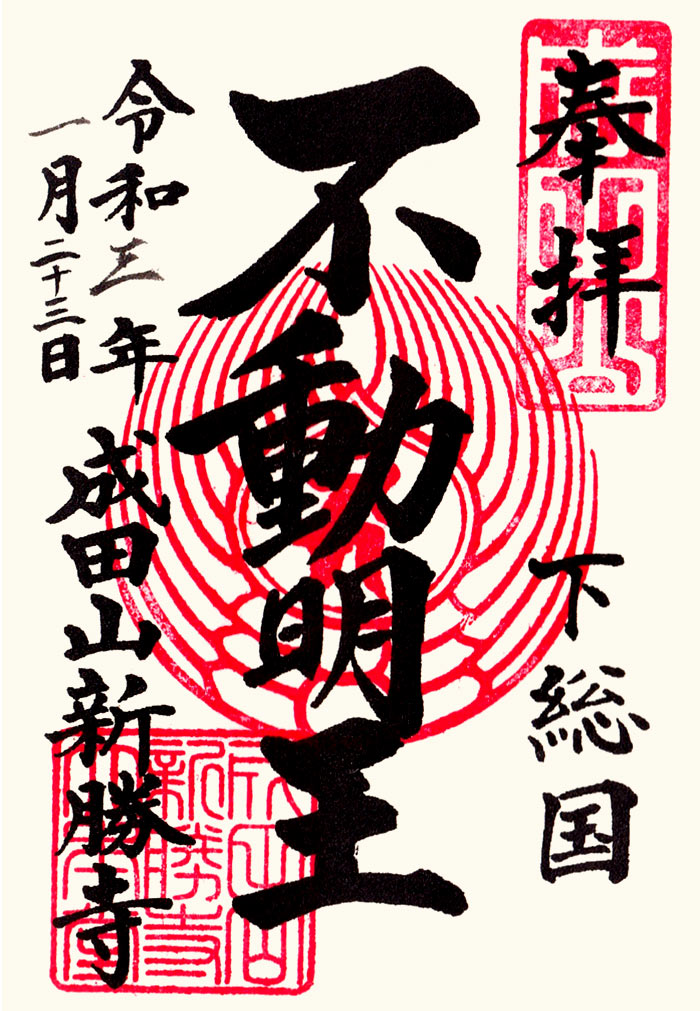 奉拝
下総国
不動明王
令和三年
一月二十三日
成田山新勝寺